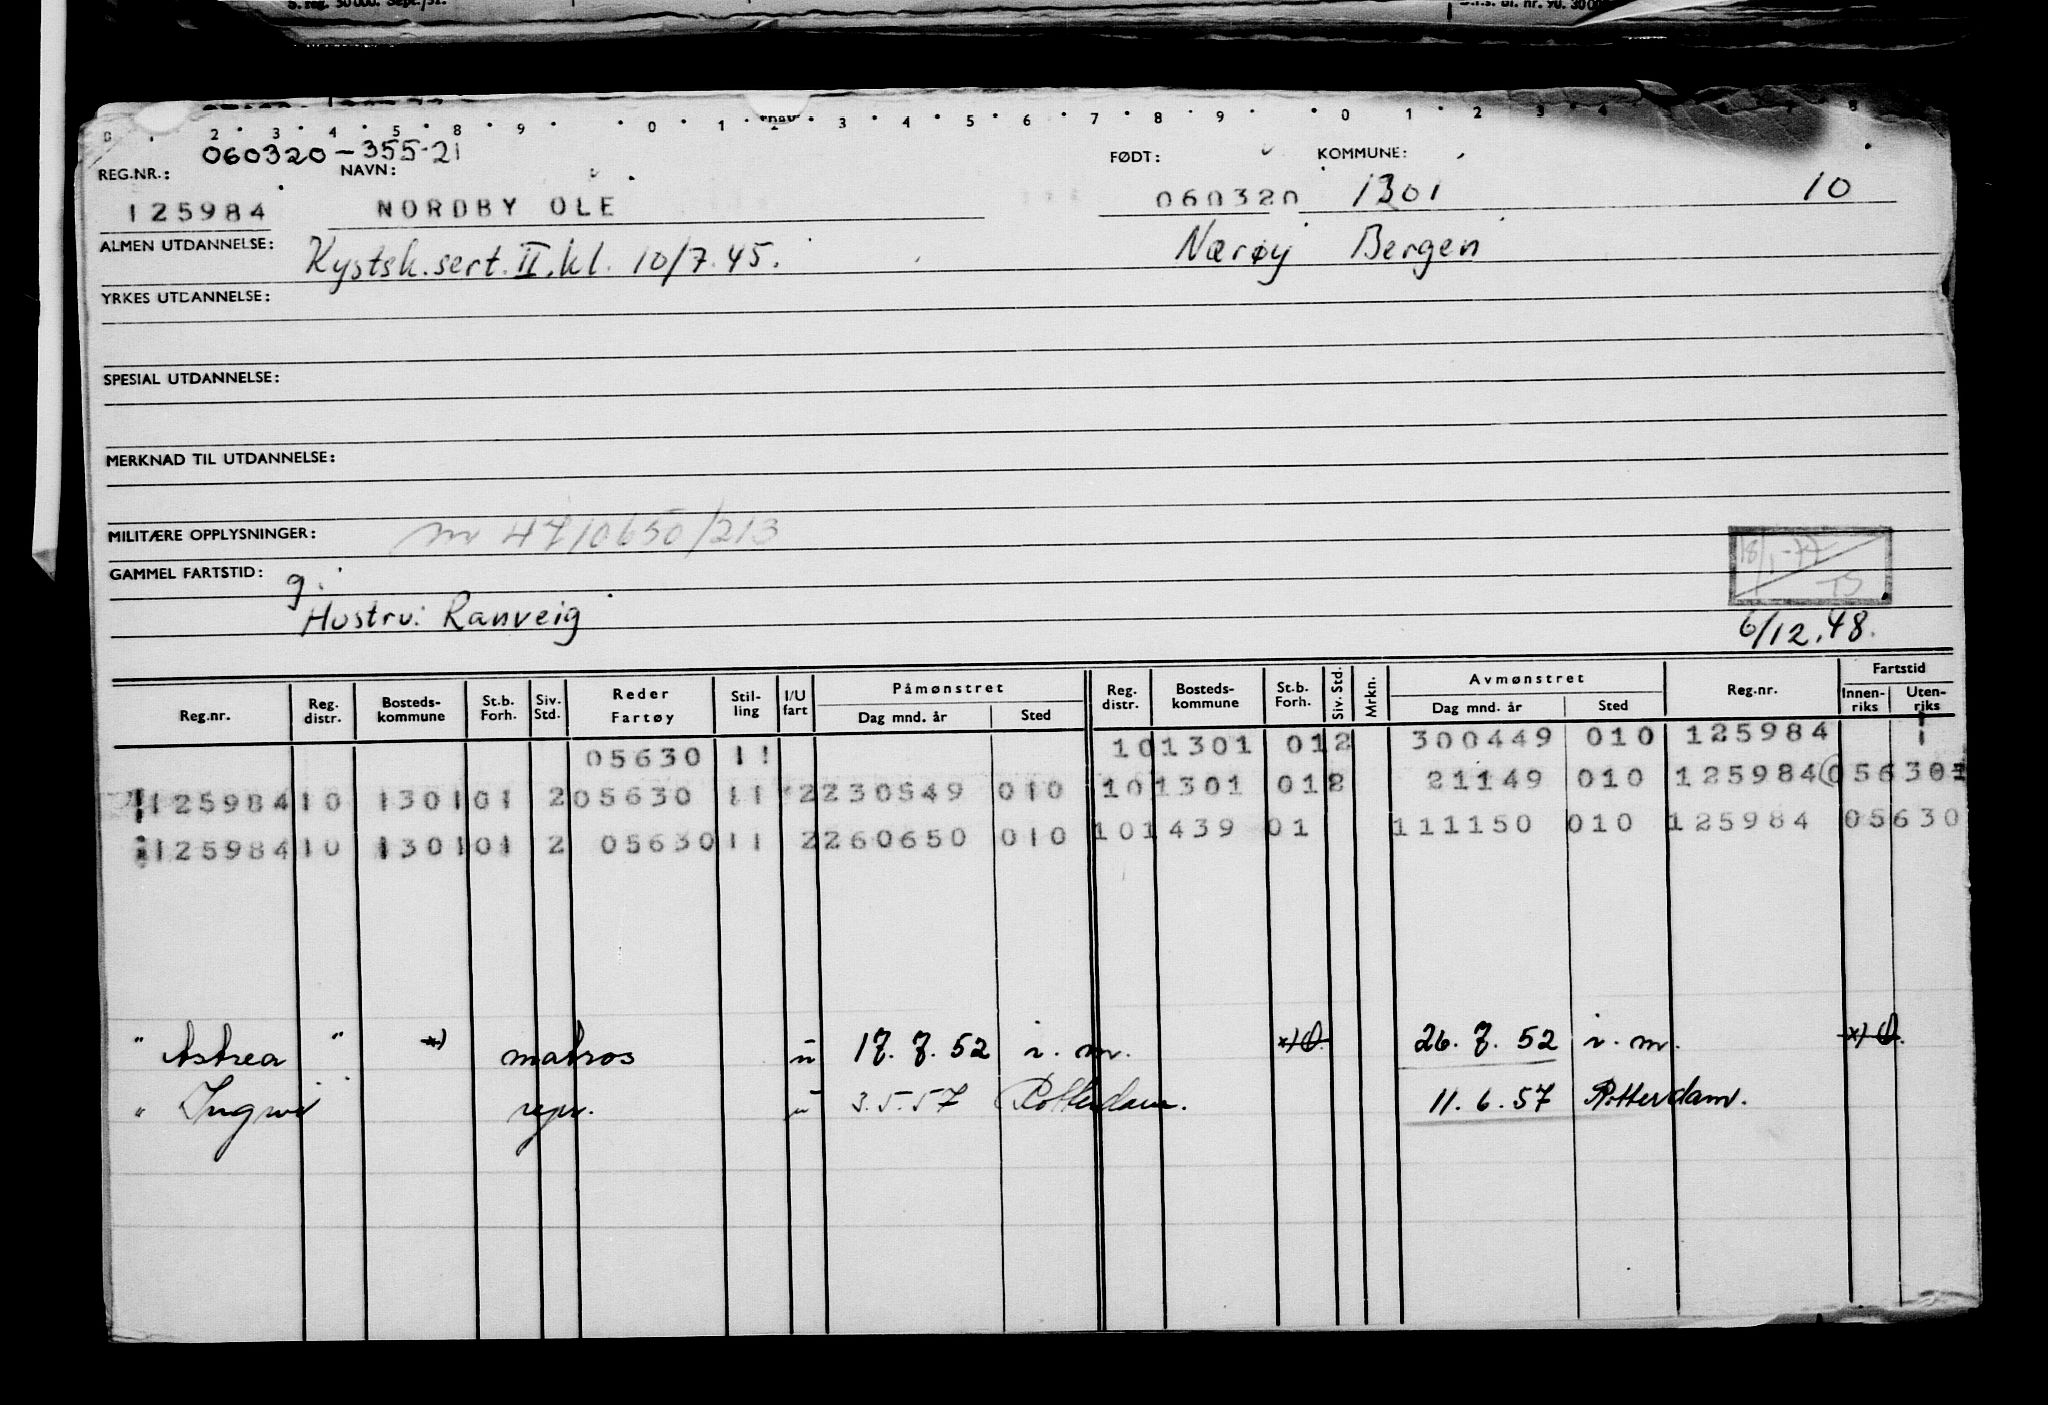 S. reg. 50 000. Sept./51.
D.f.s. bl. nr. 90. 30 000
2 · 3 · 4 · 5 · 8 · 9 · · 0 · 1 · 3 · 4 · 5 · 6 · 7 · 8 · 9 · · 0 · 1 · 2 · 3 · 4
060320-355-21
REG.NR.: NAVN: FØDT: KOMMUNE:
125984 NORDBY OLE 060320 1301 10
ALMEN UTDANNELSE: Kystsk.sert. II.kl. 10/7.45. Nærøy Bergen
YRKES UTDANNELSE:
SPESIAL UTDANNELSE:
MERKNAD TIL UTDANNELSE:
MILITÆRE OPPLYSNINGER: nr 4710650/213
18/1-77 TS
GAMMEL FARTSTID: g.
Hustru: Ranveig 6/12.48.
Reg.nr. Reg. distr. Bosteds-kommune St.b. Forh. Siv. Std. Reder Fartøy Stil-ling I/U fart Påmønstret Dag mnd. år Sted Reg. distr. Bosteds-kommune St.b. Forh. Siv. Std. Mrkn. Avmønstret Dag mnd. år Sted Reg.nr. Fartstid Innen-riks Uten-riks
05630 11 10 1301 01 2 300449 010 125984 1
125984 10 1301 01 2 05630 11 2 230549 010 10 1301 01 2 21149 010 125984 05630
125984 10 1301 01 2 05630 11 2 260650 010 10 1439 01 111150 010 125984 05630
" Astrea " *) matros u 17.7.52 i.m. *) 26.7.52 i.m. *)
" " repr. u 3.5.57 Rotterdam. 11.6.57 Rotterdam.